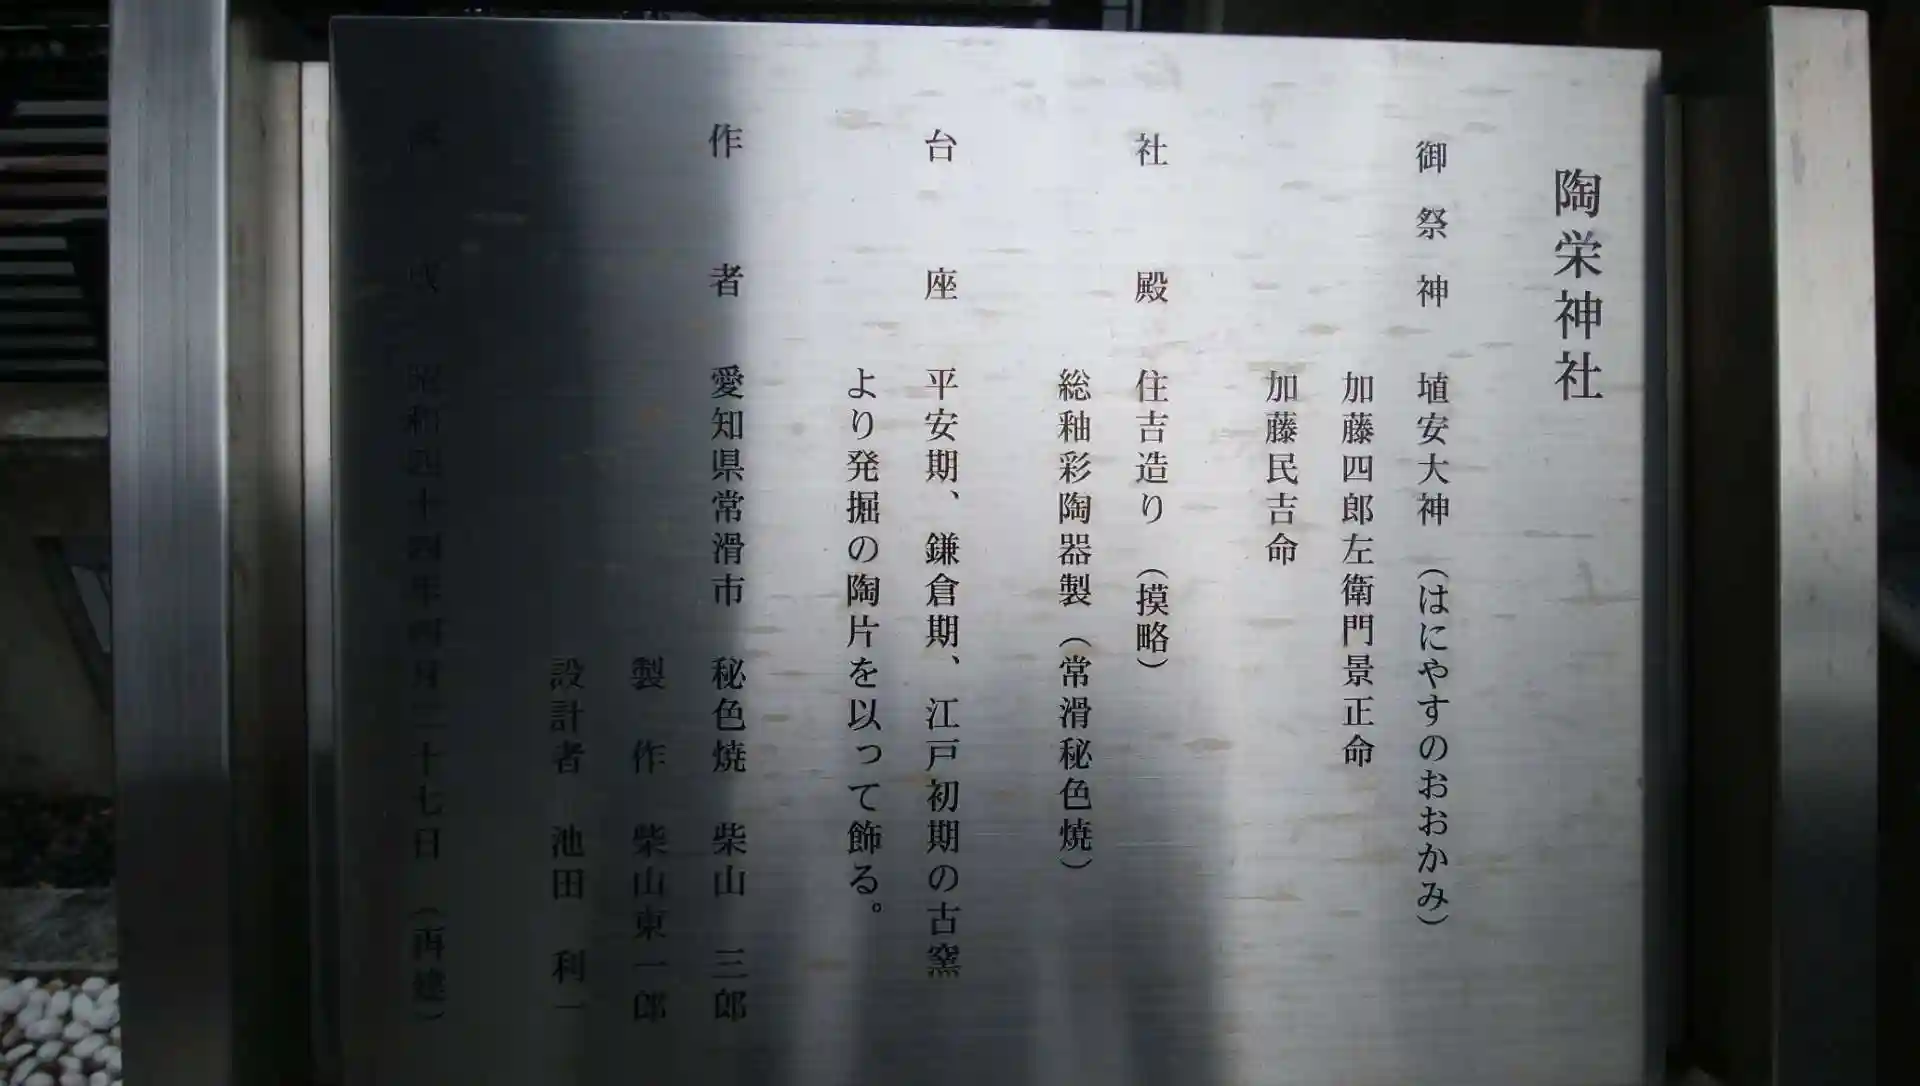 陶栄神社
御祭神 埴安大神（はにやすのおおかみ）
加藤四郎左衛門景正命
加藤民吉命
社殿 住吉造り（摸略）
総釉彩陶器製（常滑秘色焼）
台座 平安期、鎌倉期、江戸初期の古窯
より発掘の陶片を以って飾る。
作者 愛知県常滑市 秘色焼 柴山三郎
製作 柴山東一郎
設計者 池田利一
昭和四十四年四月二十七日（再建）